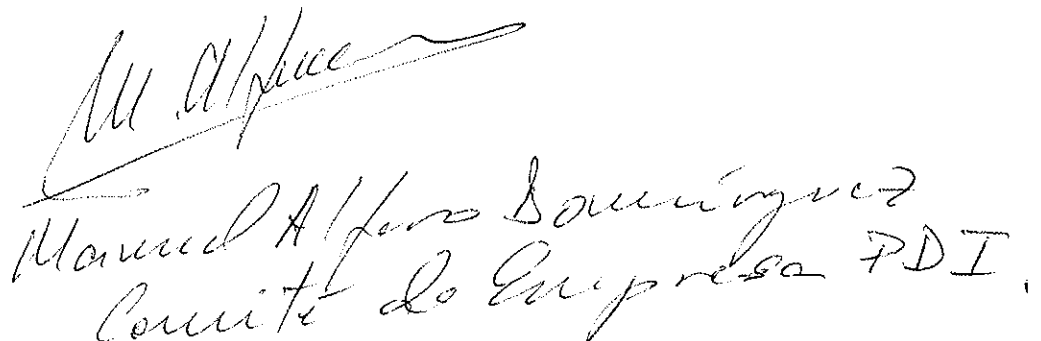 M. Alfaro
Manuel Alfaro Domínguez
Comité de Empresa PDI.